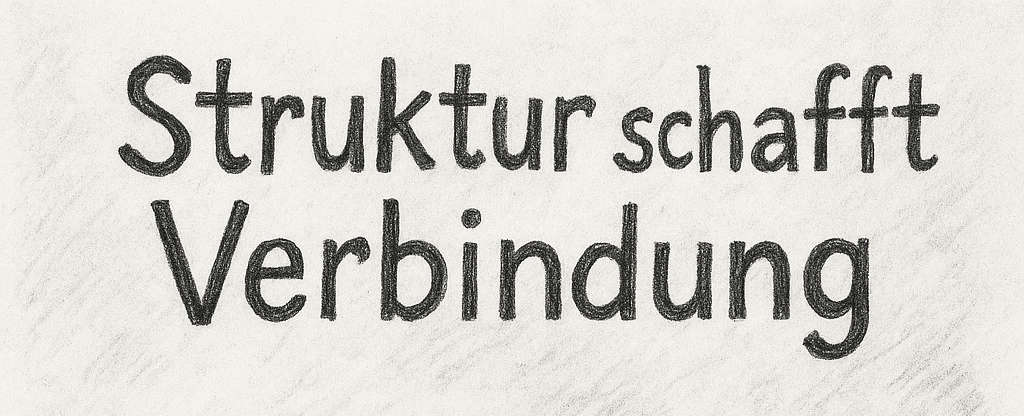 Struktur schafft
Verbindung